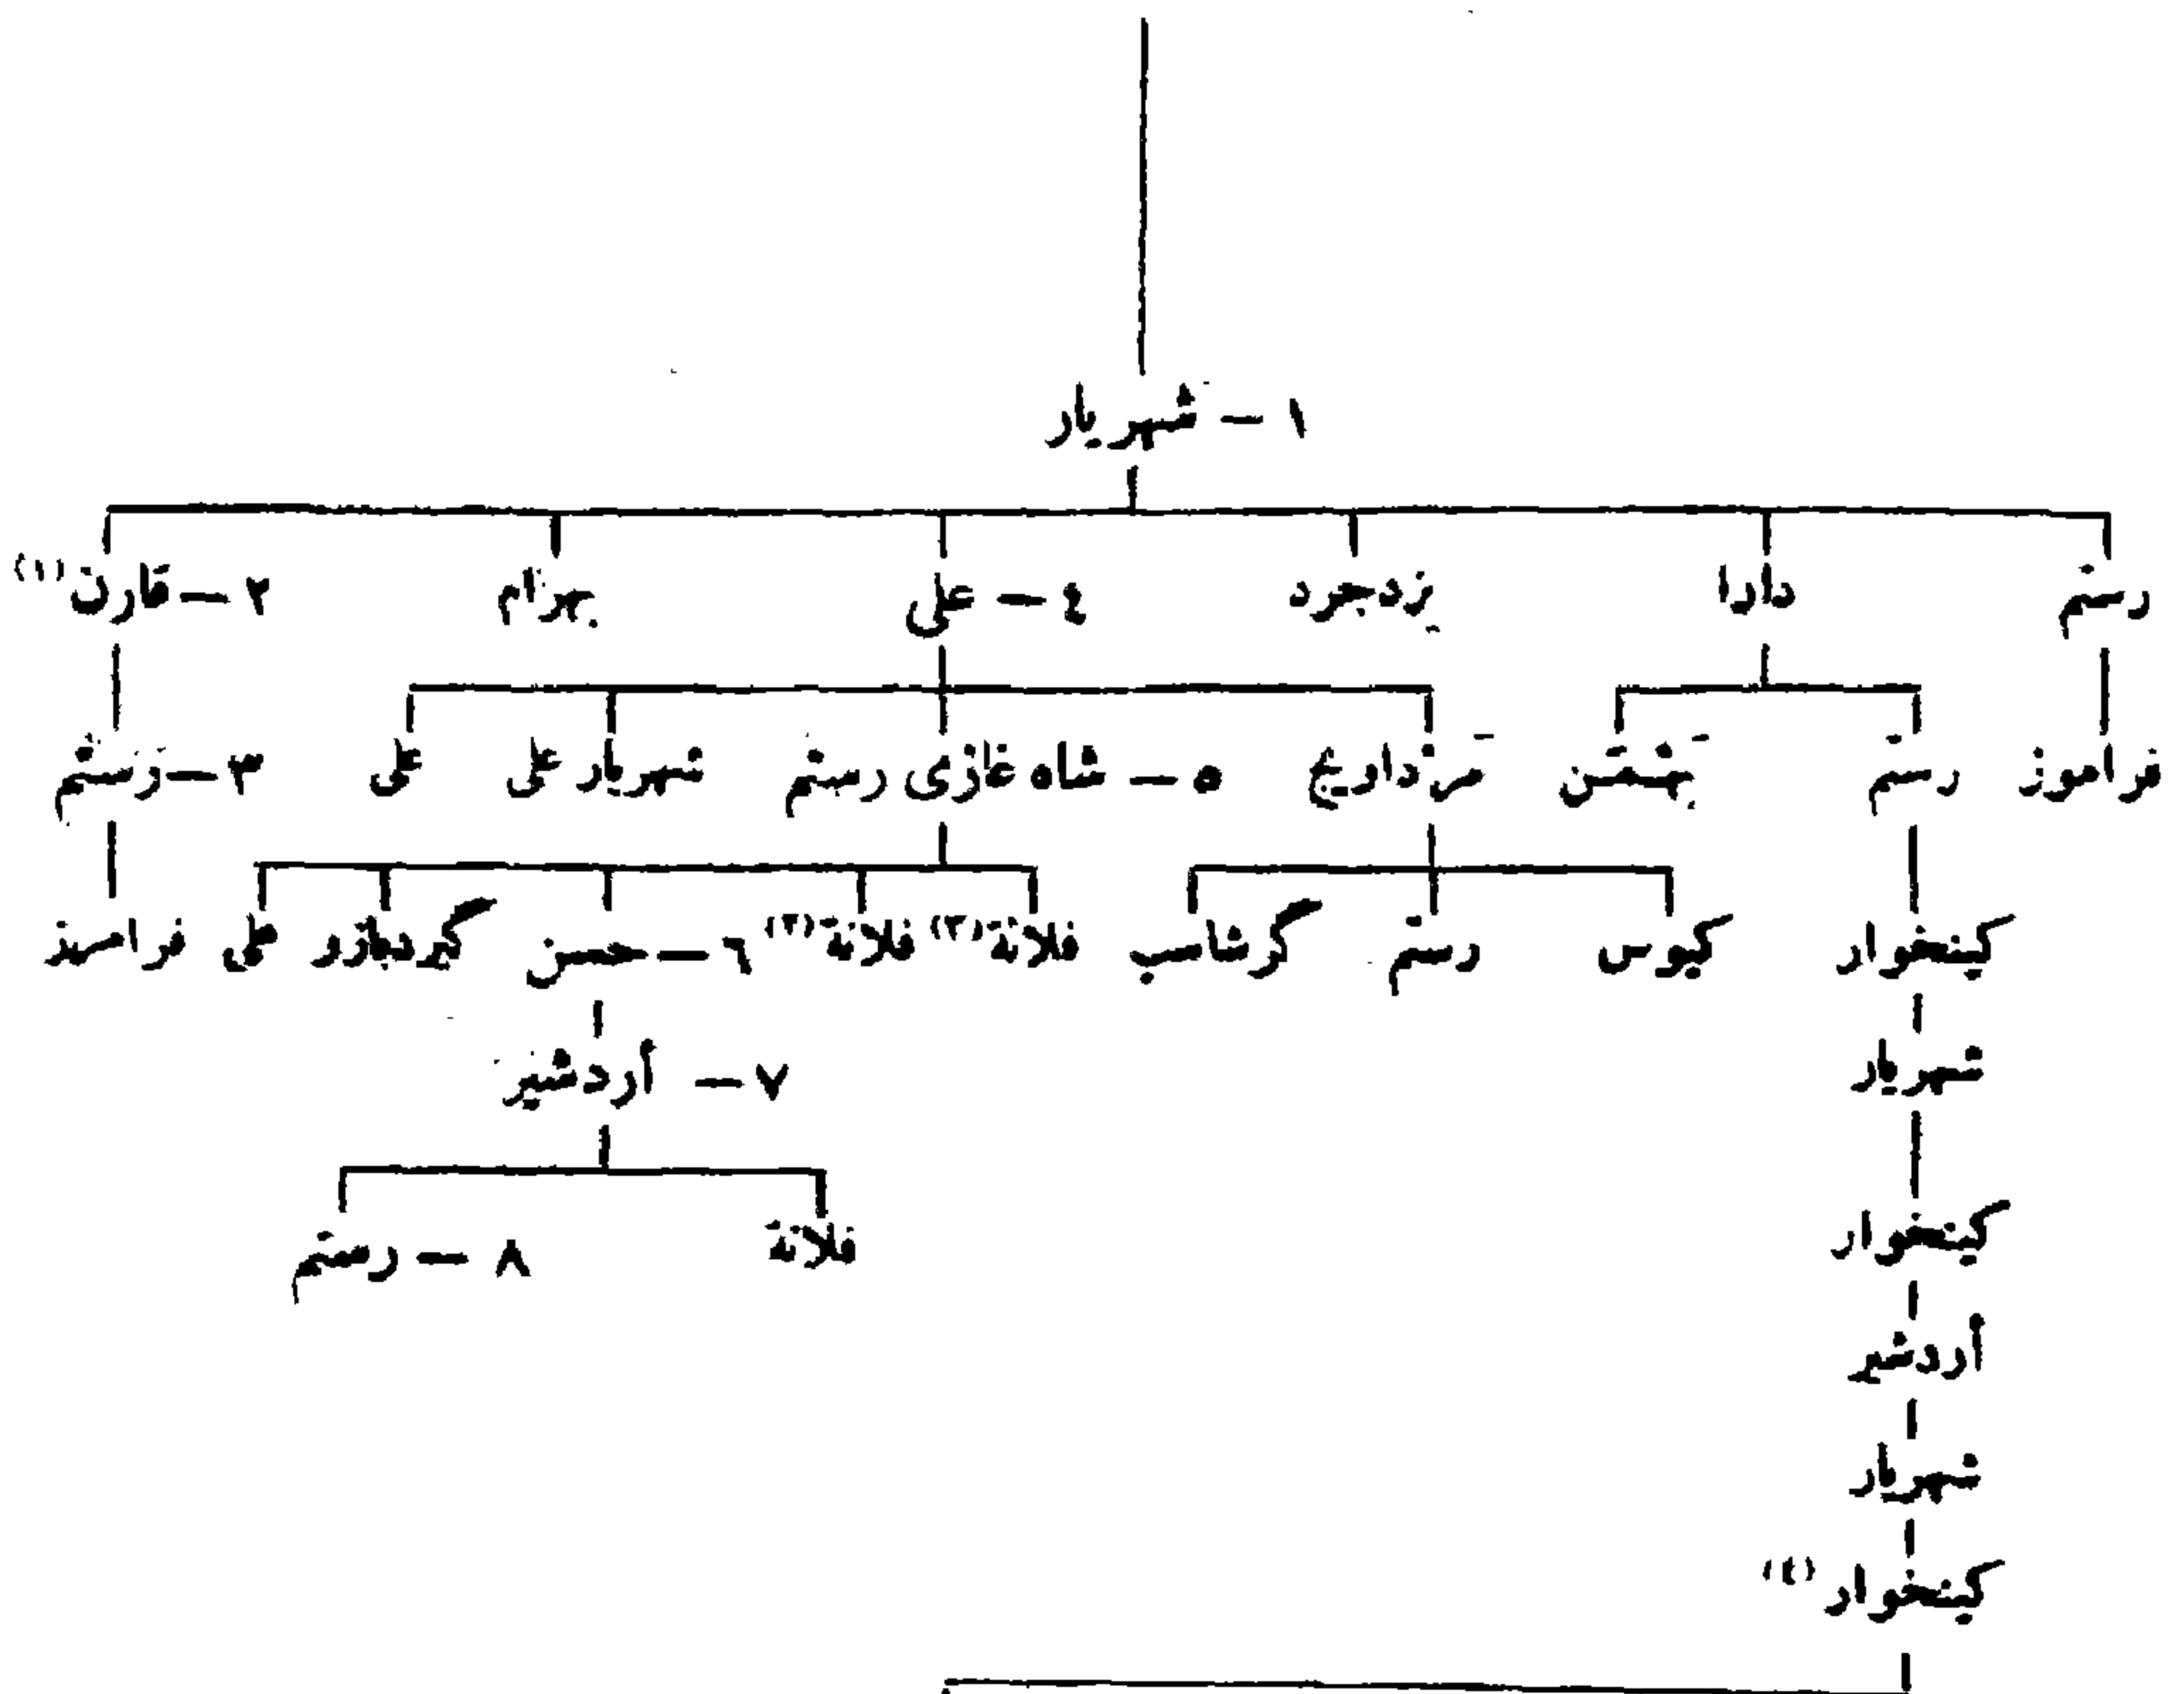 ١ - شهريار
رستم دارا يزدجرد ٤ - على بهرام ٢ - قارن (١)
فرامرز رستم بهمن مرداويج ٥ - شاه غازى رستم شهريار على على ٣ - رستم
كينخوار كيوس رستم كرشاسب فلانة (٣) فلانة (٢) ٦ - حسن على فرامرز
شهريار
٧ - أردشير
كينخوار
فلانة ٨ - رستم
أردشير
شهريار
كينخوار (٤)